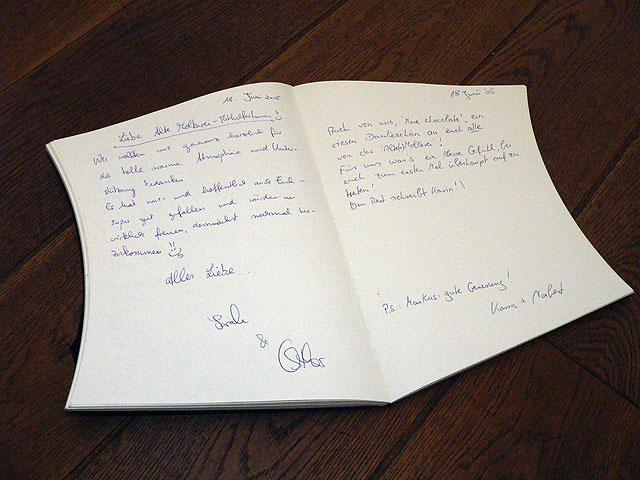 18. Juni 2005
Liebe Alte Molkerei-MithelferInnen
Wir wollten uns ganz herzlich für
die tolle, warme Atmosphäre und Unter-
stützung bedanken.
Es hat uns- und hoffentlich auch Euch-
super gut gefallen und würden uns
wirklich freuen, demnächst nochmal her-
zukommen
Alles Liebe...
Sarah
&
18 Juni '05
Auch von uns, 'More chocolate', ein
riesen Dankeschön an euch alle
von der 'Alte Molkerei'!
Für uns war's ein Gefühl, bei
euch zum ersten Mal überhaupt aufzu
treten!
Den Rest schreibt Karin!
Ps.: Markus: gute Genesung!
Karin + Norbert